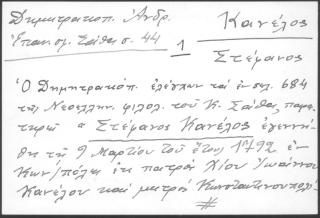 Δημητρακόπ. Ἀνδρ.
Ἐπαν. σφ. Σάθα σ. 44
Κανέλος
1
Στέφανος
Ὁ Δημητρακόπ. ἐλέγχων τά ἐν σελ. 684
τῆς Νεοελλην. φιλολ. τοῦ Κ. Σάθα, παρα-
τηρεῖ " Στέφανος Κανέλος ἐγεννή-
θη τῇ 9 Μαρτίου τοῦ ἔτους 1792 ἐν
Κων/πόλει ἐκ πατρός Χίου Ἰωάννου
Κανέλου καί μητρός Κωνσταντινουπολί-
#